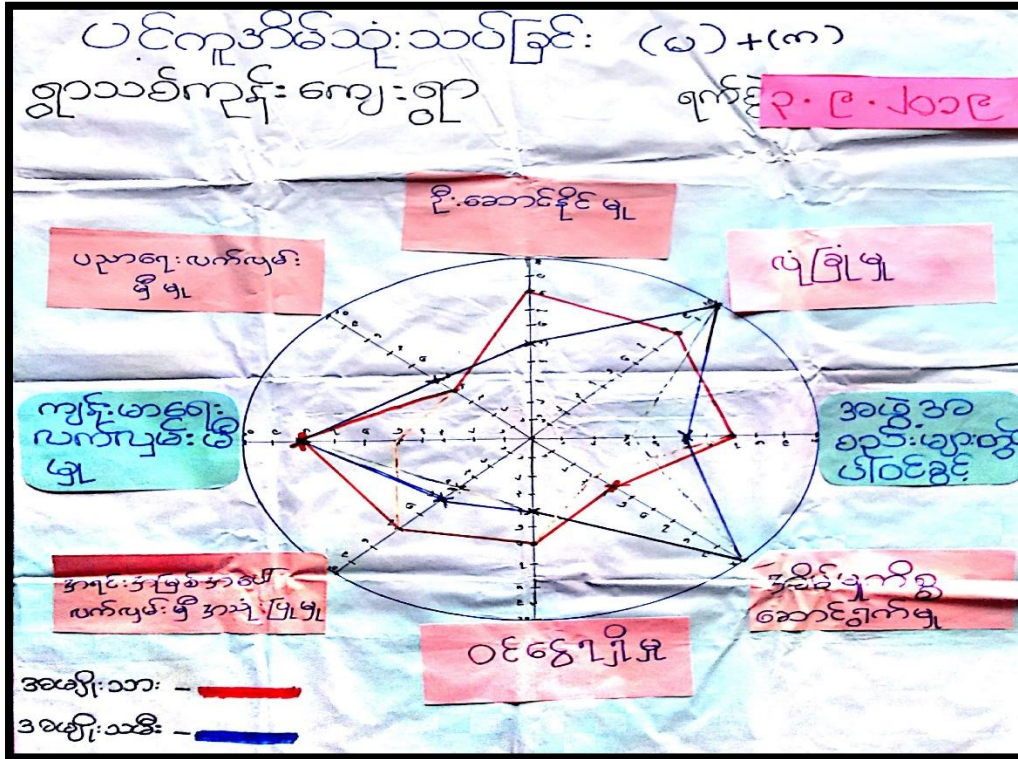 ပင်ကူအိမ်သုံးသပ်ခြင်း (မ)+(ကျ)
ရွာသစ်ကုန်းကျေးရွာ
ရက်စွဲ ၃.၉.၂၀၁၉
ဦးဆောင်နိုင်မှု
ပညာရေးလက်လှမ်း
မှီမှု
လုံခြုံမှု
ကျန်းမာရေး
လက်လှမ်းမှီ
မှု
အဖွဲ့အ
စည်းများတွင်
ပါဝင်ခွင့်
အရင်းအမြစ်အပေါ်
လက်လှမ်းမှီအသုံးပြုမှု
အိမ်မှုကိစ္စ
ဆောင်ရွက်မှု
ဝင်ငွေရရှိမှု
အမျိုးသား -
အမျိုးသမီး -